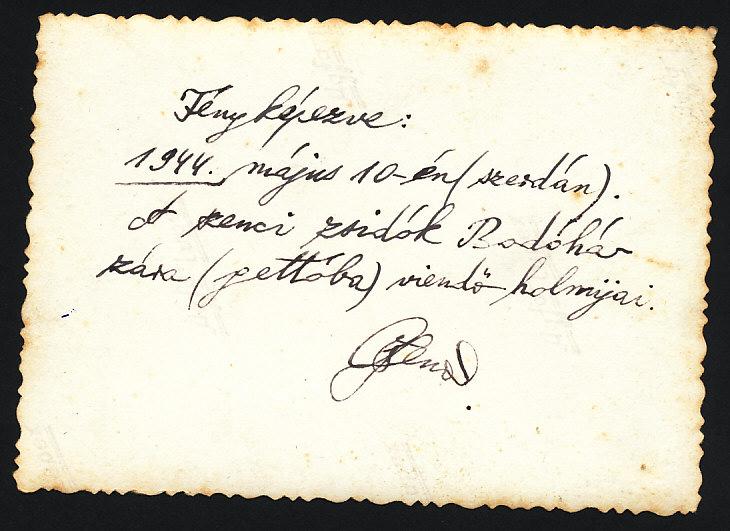 Fényképezve:
1944. május 10-én (szerdán).
A szenci zsidók Bodóhá-
zára (gettóba) viendő holmijai.